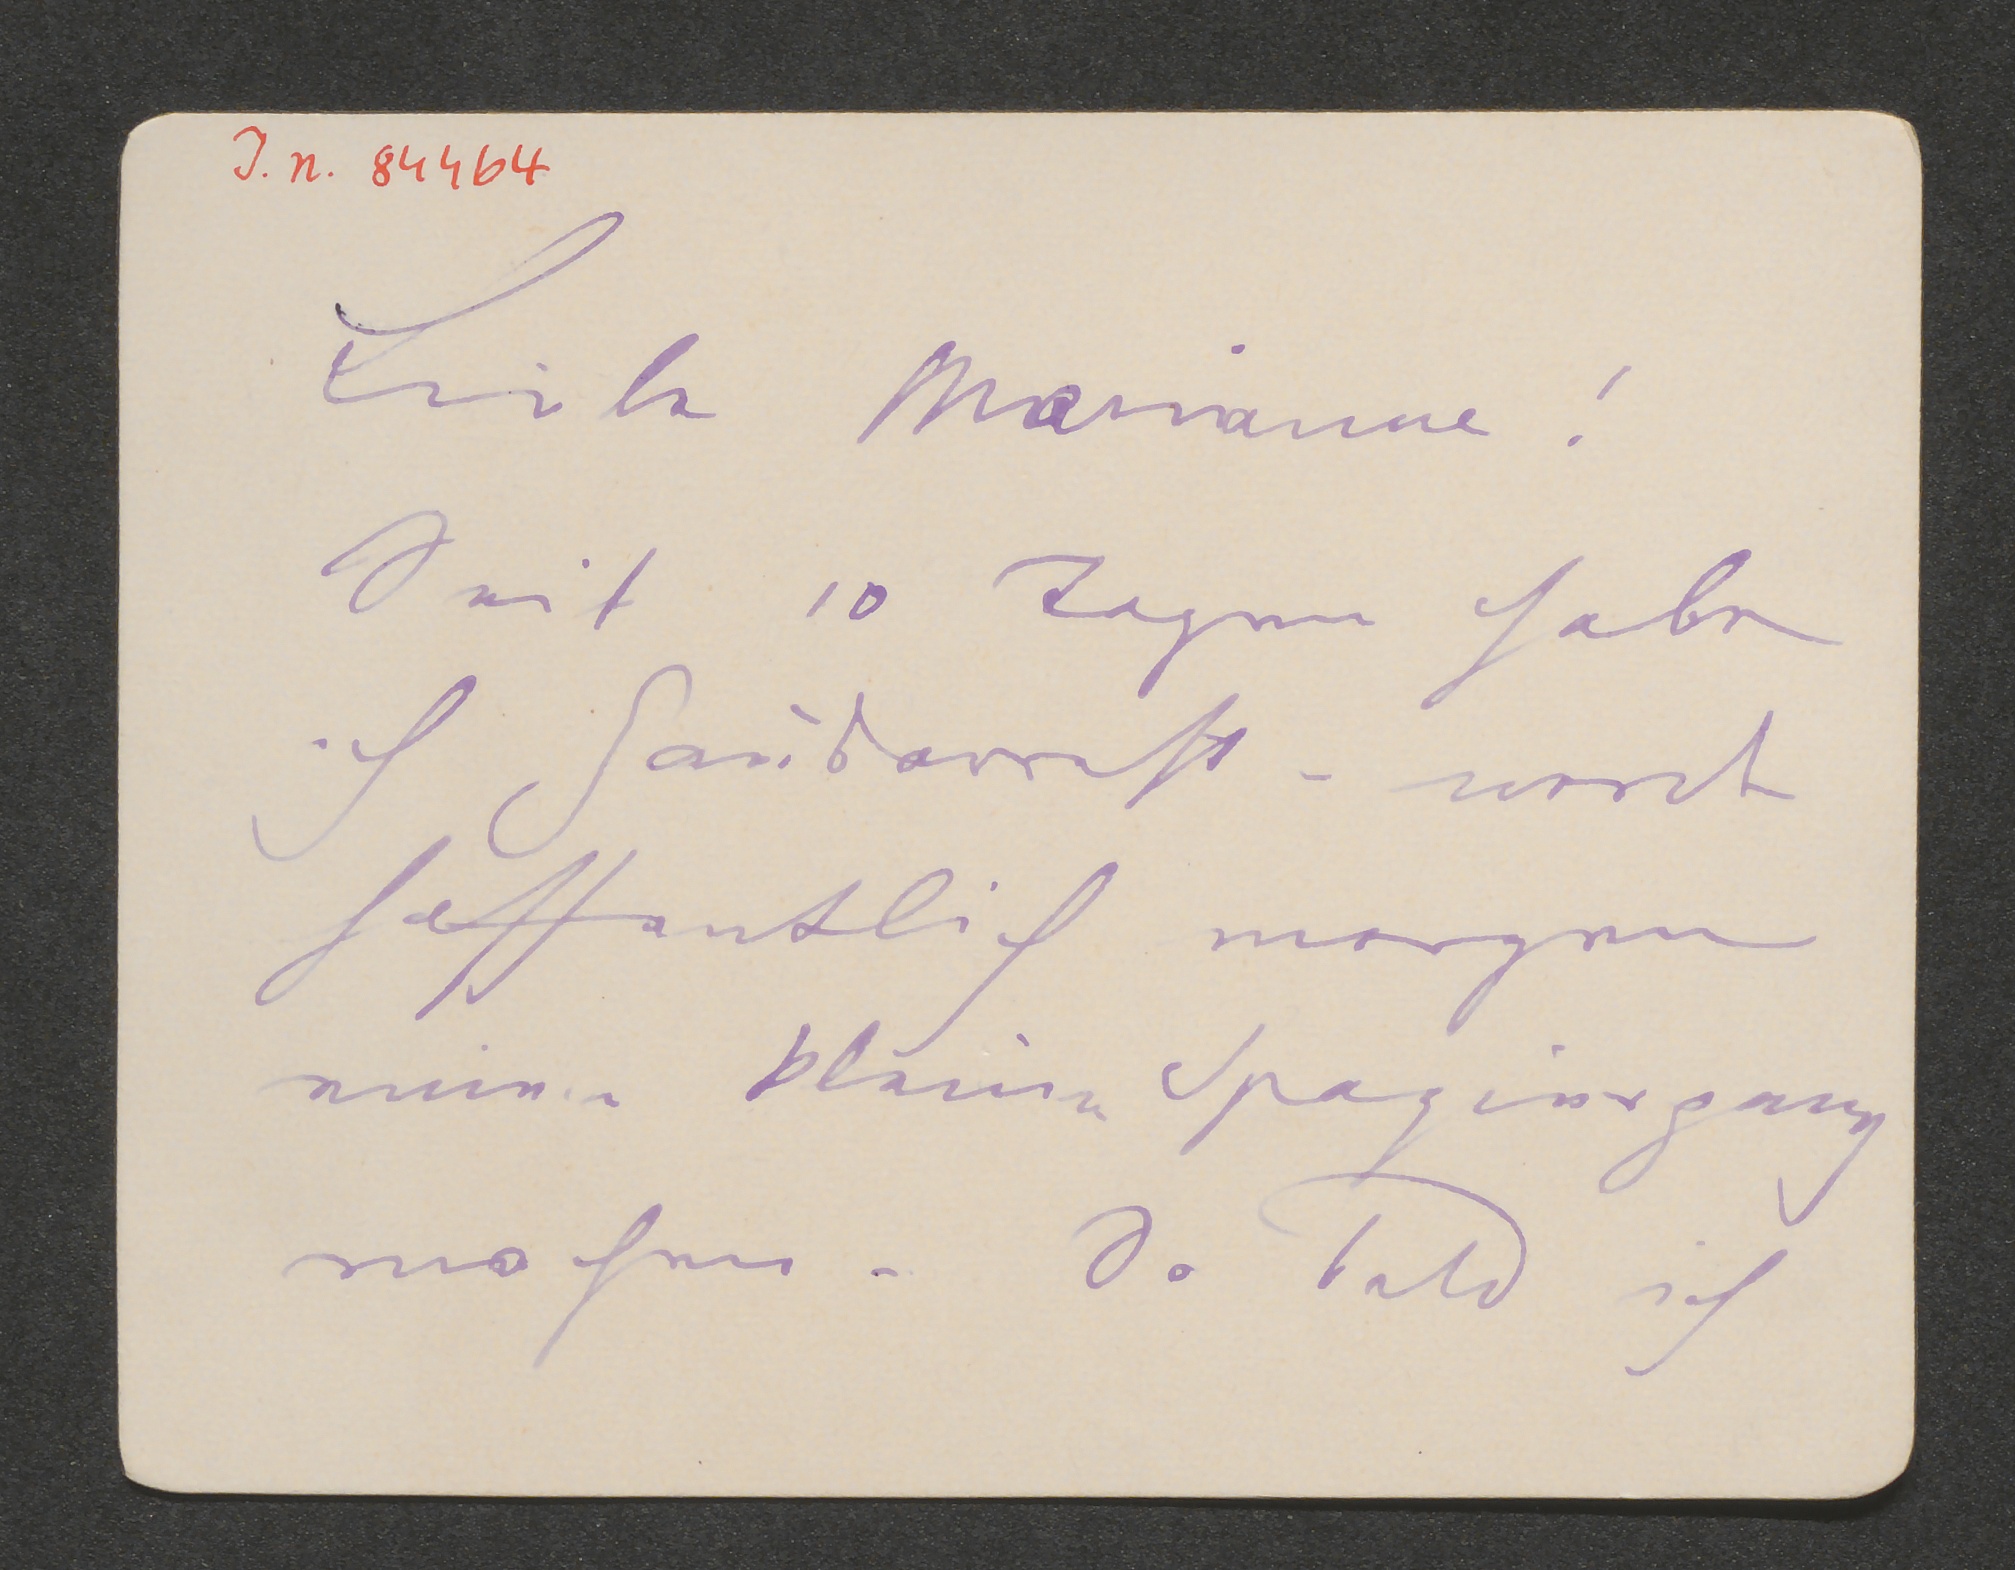 I. n. 84464
Liebe Marianne!
Seit 10 Tagen habe
ich Hausarrest - werde
hoffentlich morgen
einen kleinen Spaziergang
machen. So bald ich